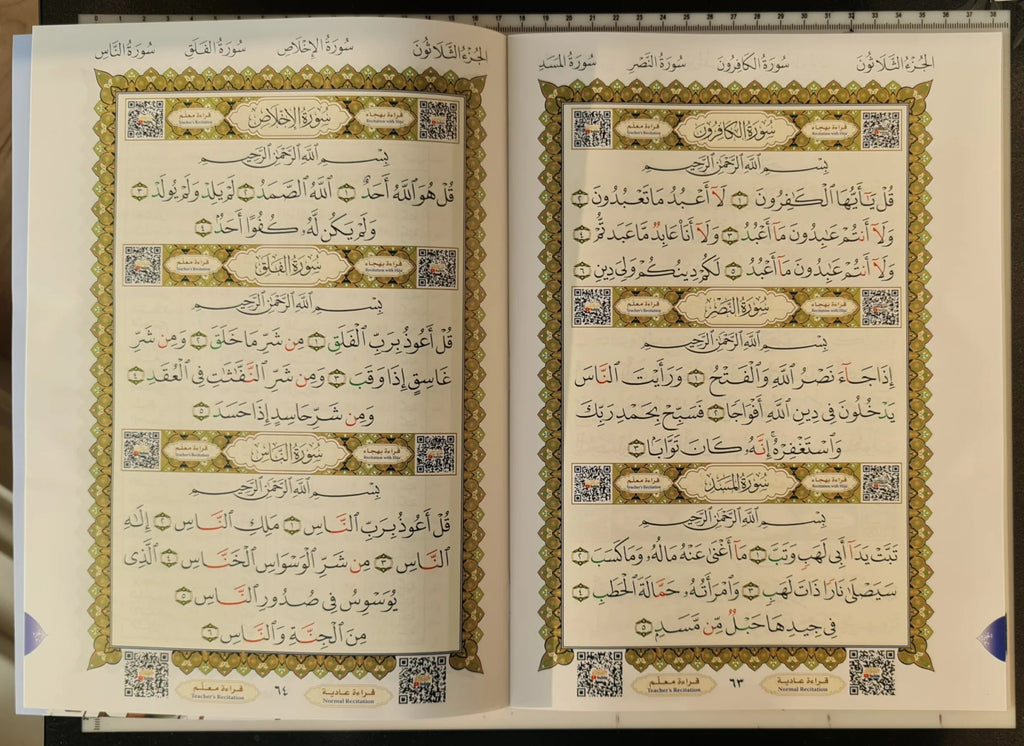 الجُزْءُ الثَّلَاثُونَ سُورَةُ الكَافِرُونَ سُورَةُ النَّصْرِ سُورَةُ المَسَدِ
قراءة بهجاء
Recitation with Hija
سُورَةُ الكَافِرُونَ
قراءة معلم
Teacher's Recitation
بِسْمِ اللَّهِ الرَّحْمَٰنِ الرَّحِيمِ
قُلْ يَٰٓأَيُّهَا ٱلْكَٰفِرُونَ ١ لَآ أَعْبُدُ مَا تَعْبُدُونَ ٢
وَلَآ أَنتُمْ عَٰبِدُونَ مَآ أَعْبُدُ ٣ وَلَآ أَنَا۠ عَابِدٌ مَّا عَبَدتُّمْ ٤
وَلَآ أَنتُمْ عَٰبِدُونَ مَآ أَعْبُدُ ٥ لَكُمْ دِينُكُمْ وَلِيَ دِينِ ٦
قراءة بهجاء
Recitation with Hija
سُورَةُ النَّصْرِ
قراءة معلم
Teacher's Recitation
بِسْمِ اللَّهِ الرَّحْمَٰنِ الرَّحِيمِ
إِذَا جَآءَ نَصْرُ ٱللَّهِ وَٱلْفَتْحُ ١ وَرَأَيْتَ ٱلنَّاسَ
يَدْخُلُونَ فِى دِينِ ٱللَّهِ أَفْوَاجًا ٢ فَسَبِّحْ بِحَمْدِ رَبِّكَ
وَٱسْتَغْفِرْهُ ۚ إِنَّهُۥ كَانَ تَوَّابًۢا ٣
قراءة بهجاء
Recitation with Hija
سُورَةُ المَسَدِ
قراءة معلم
Teacher's Recitation
بِسْمِ اللَّهِ الرَّحْمَٰنِ الرَّحِيمِ
تَبَّتْ يَدَآ أَبِى لَهَبٍ وَتَبَّ ١ مَآ أَغْنَىٰ عَنْهُ مَالُهُۥ وَمَا كَسَبَ ٢
سَيَصْلَىٰ نَارًا ذَاتَ لَهَبٍ ٣ وَٱمْرَأَتُهُۥ حَمَّالَةَ ٱلْحَطَبِ ٤
فِى جِيدِهَا حَبْلٌ مِّن مَّسَدٍۭ ٥
قراءة عادية
Normal Recitation
٦٣
قراءة معلم
Teacher's Recitation
الجُزْءُ الثَّلَاثُونَ سُورَةُ الإِخْلَاصِ سُورَةُ الفَلَقِ سُورَةُ النَّاسِ
قراءة بهجاء
Recitation with Hija
سُورَةُ الإِخْلَاصِ
قراءة معلم
Teacher's Recitation
بِسْمِ اللَّهِ الرَّحْمَٰنِ الرَّحِيمِ
قُلْ هُوَ ٱللَّهُ أَحَدٌ ١ ٱللَّهُ ٱلصَّمَدُ ٢ لَمْ يَلِدْ وَلَمْ يُولَدْ ٣
وَلَمْ يَكُن لَّهُۥ كُفُوًا أَحَدٌۢ ٤
قراءة بهجاء
Recitation with Hija
سُورَةُ الفَلَقِ
قراءة معلم
Teacher's Recitation
بِسْمِ اللَّهِ الرَّحْمَٰنِ الرَّحِيمِ
قُلْ أَعُوذُ بِرَبِّ ٱلْفَلَقِ ١ مِن شَرِّ مَا خَلَقَ ٢ وَمِن شَرِّ
غَاسِقٍ إِذَا وَقَبَ ٣ وَمِن شَرِّ ٱلنَّفَّٰثَٰتِ فِى ٱلْعُقَدِ ٤
وَمِن شَرِّ حَاسِدٍ إِذَا حَسَدَ ٥
قراءة بهجاء
Recitation with Hija
سُورَةُ النَّاسِ
قراءة معلم
Teacher's Recitation
بِسْمِ اللَّهِ الرَّحْمَٰنِ الرَّحِيمِ
قُلْ أَعُوذُ بِرَبِّ ٱلنَّاسِ ١ مَلِكِ ٱلنَّاسِ ٢ إِلَٰهِ
ٱلنَّاسِ ٣ مِن شَرِّ ٱلْوَسْوَاسِ ٱلْخَنَّاسِ ٤ ٱلَّذِى
يُوَسْوِسُ فِى صُدُورِ ٱلنَّاسِ ٥
مِنَ ٱلْجِنَّةِ وَٱلنَّاسِ ٦
قراءة عادية
Normal Recitation
٦٤
قراءة معلم
Teacher's Recitation